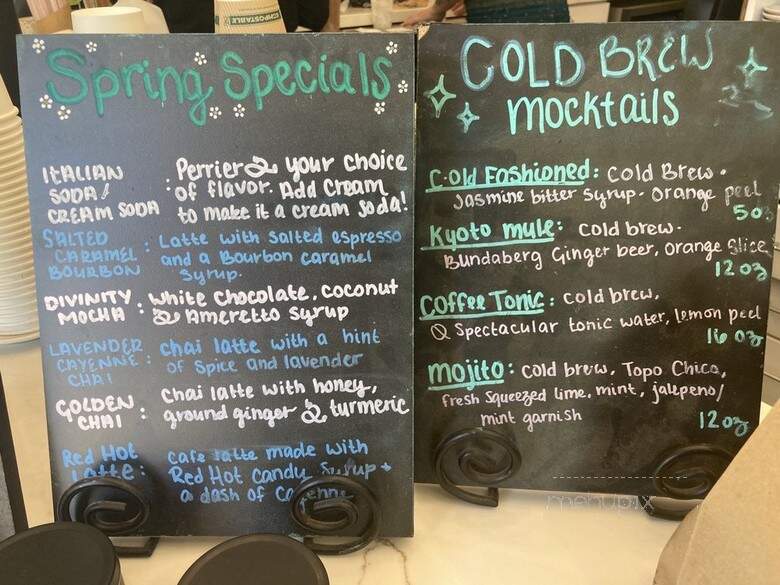 COMPOSTABLE
Spring Specials
ITALIAN SODA/ CREAM SODA : Perrier & your choice
of flavor. Add Cream
to make it a cream soda!
SALTED CARAMEL BOURBON : Latte with salted espresso
and a Bourbon caramel
syrup.
DIVINITY MOCHA : White Chocolate, coconut
& Ameretto syrup
LAVENDER CAYENNE CHAI : Chai latte with a hint
of spice and lavender
GOLDEN CHAI : Chai latte with honey,
ground ginger & turmeric
Red Hot Latte: Cafe latte made with
Red Hot candy Syrup +
a dash of Cayenne
COLD BREW
mocktails
C-old Fashioned: Cold Brew.
Jasmine bitter syrup. Orange peel
5oz
Kyoto mule: Cold brew.
Bundaberg Ginger beer, Orange Slice
12oz
Coffee Tonic: Cold brew,
Q Spectacular tonic water, lemon peel
16oz
mojito: cold brew, Topo Chico,
fresh squeezed lime, mint, jalepeno/
mint garnish
12oz
menupix